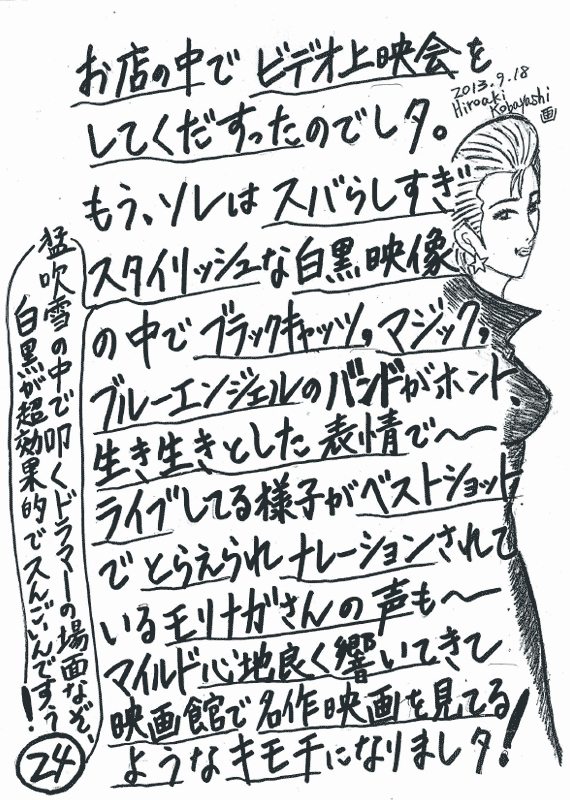 お店の中でビデオ上映会を
してくだすったのでしタ。
2013.9.18
Hiroaki
Kobayashi
画
もう、ソレはスバらしすぎ
スタイリッシュな白黒映像
の中でブラックキャッツ,マジック,
ブルーエンジェルのバンドがホント
生き生きとした表情で〜
ライブしてる様子がベストショット
でとらえられナレーションされて
いるモリナガさんの声も〜
マイルド心地良く響いてきて
映画館で名作映画を見てる
ようなキモチになりましタ!
猛吹雪の中で叩くドラマーの場面なぞ、
白黒が超効果的でスんごいんですぅ!
24